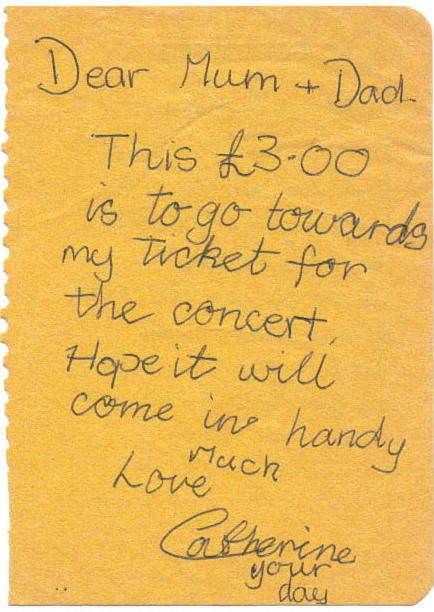 Dear Mum + Dad.
This £3.00
is to go towards
my ticket for
the concert,
Hope it will
come in handy
Much
Love
Catherine
your
day